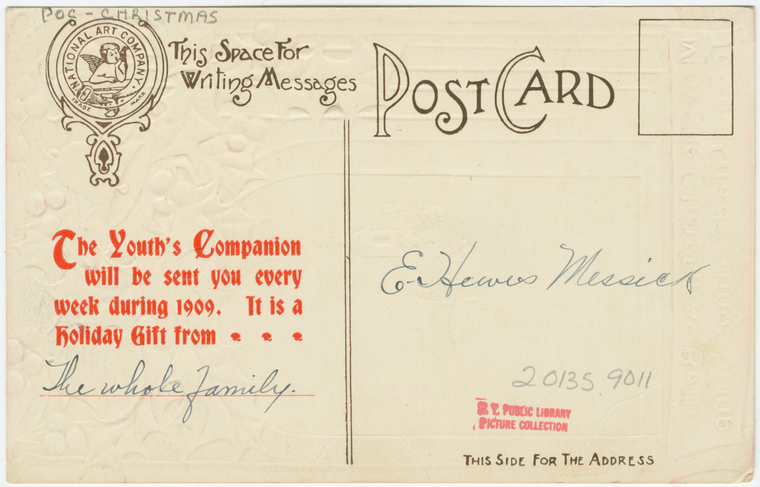 POC - CHRISTMAS
NATIONAL ART COMPANY.
TRADE MARK
This Space For
Writing Messages
POST CARD
The Youth's Companion
will be sent you every
week during 1909. It is a
Holiday Gift from
The whole family.
E Hewes Messick
20135 9011
N. Y. PUBLIC LIBRARY
PICTURE COLLECTION
THIS SIDE FOR THE ADDRESS